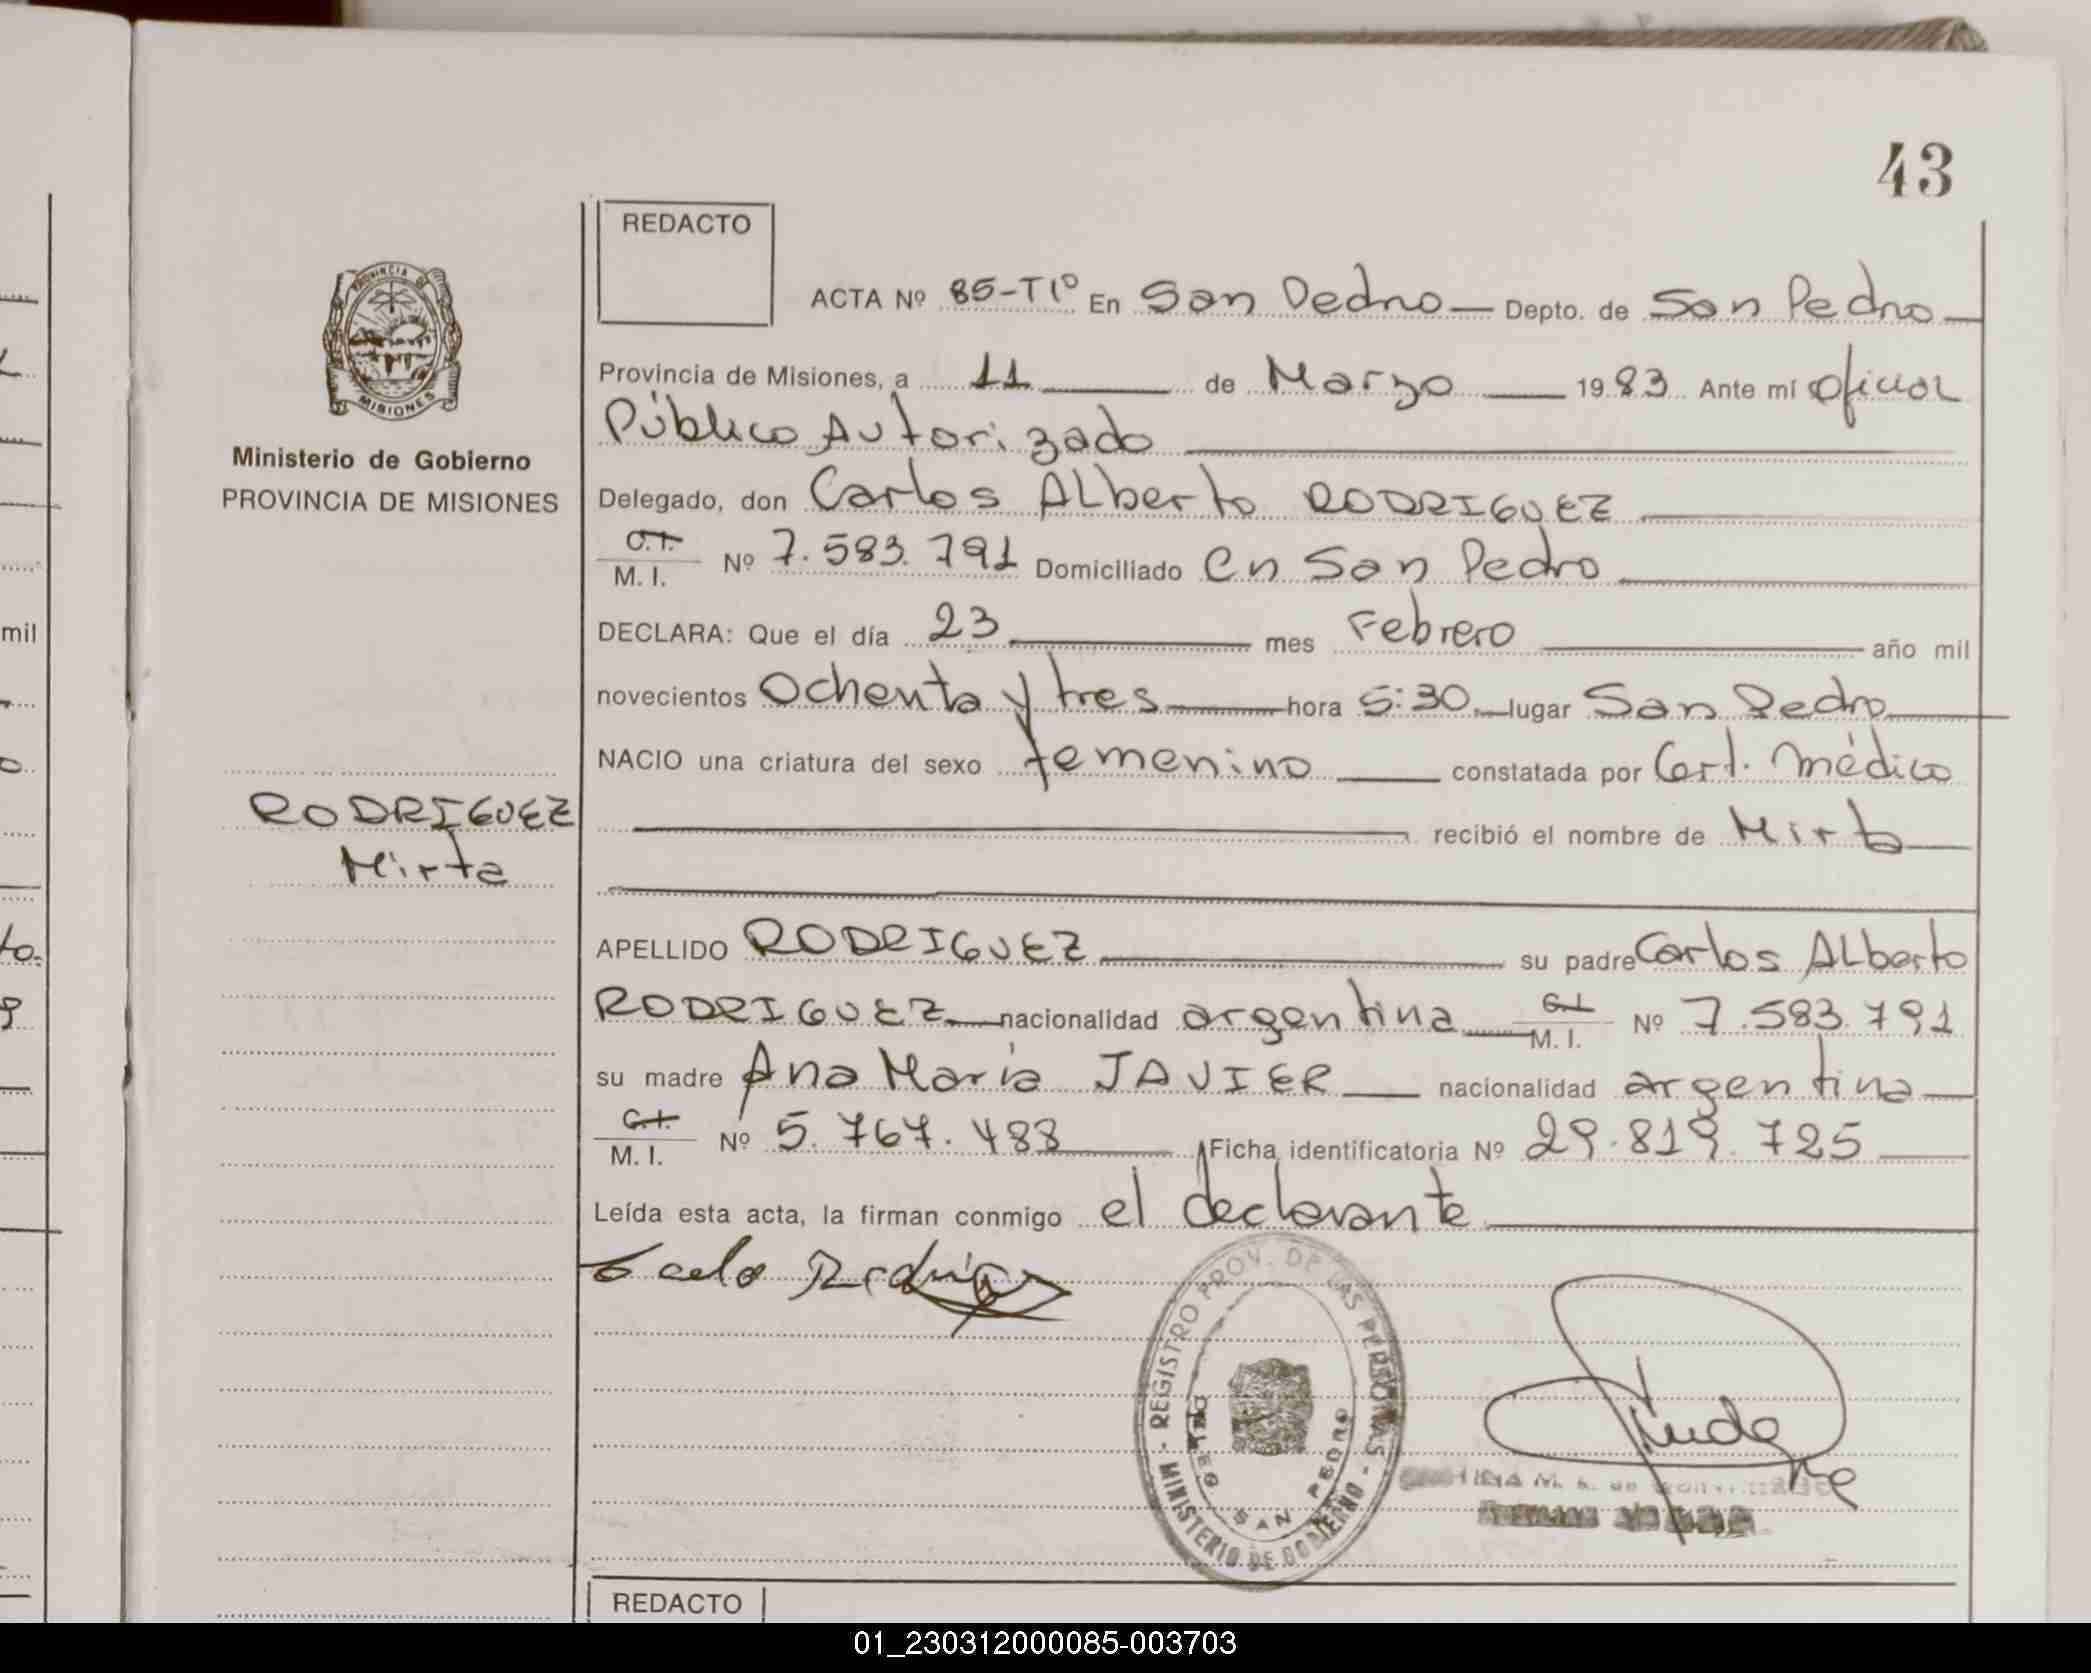 43
REDACTO
ACTA Nº 85-T1º En San Pedro Depto. de San Pedro
Provincia de Misiones, a 11 de Marzo 1983 Ante mí Oficial
Público Autorizado
Delegado, don Carlos Alberto RODRIGUEZ
C.I. M. I. Nº 7.583.791 Domiciliado en San Pedro
DECLARA: Que el día 23 mes Febrero año mil
novecientos Ochenta y tres hora 5:30 lugar San Pedro
NACIO una criatura del sexo femenino constatada por Cert. médico
recibió el nombre de Mirta
APELLIDO RODRIGUEZ su padre Carlos Alberto
RODRIGUEZ nacionalidad argentina C.I. M. I. Nº 7.583.791
su madre Ana María JAVIER nacionalidad argentina
C.I. M. I. Nº 5.767.488 Ficha identificatoria Nº 29.819.725
Leída esta acta, la firman conmigo el declarante
REGISTRO PROV. DE LAS PERSONAS - MINISTERIO DE GOBIERNO -
SAN PEDRO
REDACTO
PROVINCIA DE MISIONES
Ministerio de Gobierno
PROVINCIA DE MISIONES
RODRIGUEZ
Mirta
mil
01_230312000085-003703